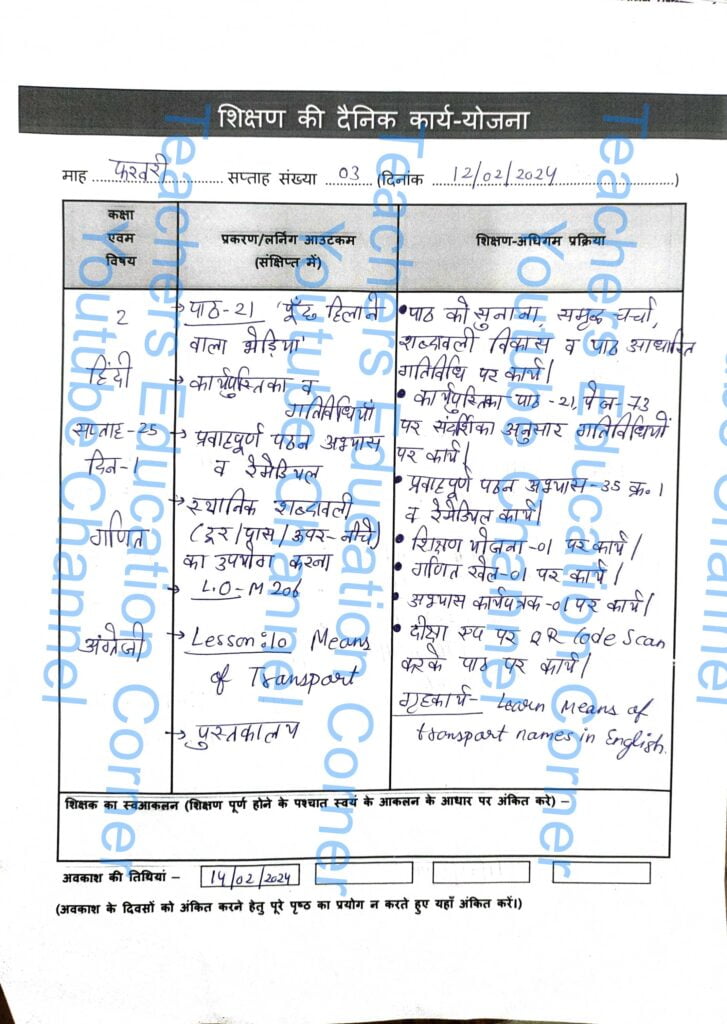 शिक्षण की दैनिक कार्य-योजना
माह फरवरी सप्ताह संख्या 03 (दिनांक 12/02/2024)
कक्षा
एवम
विषय
प्रकरण/लर्निंग आउटकम
(संक्षिप्त में)
शिक्षण-अधिगम प्रक्रिया
2
हिंदी
सप्ताह-25
दिन-1
गणित
अंग्रेजी
→ पाठ-21 'पूँछ हिलाने
वाला भेड़िया'
→ कार्यपुस्तिका व
गतिविधियाँ
→ प्रवाहपूर्ण पठन अभ्यास
व रेमेडियल
→ स्थानिक शब्दावली
(दूर/पास/ऊपर-नीचे)
का उपयोग करना
→ L.O-M206
→ Lesson:10 Means
of Transport
→ पुस्तकालय
• पाठ को सुनाना, समृद्ध चर्चा,
शब्दावली विकास व पाठ आधारित
गतिविधि पर कार्य|
• कार्यपुस्तिका पाठ-21, पेज-73
पर संदर्शिका अनुसार गतिविधियों
पर कार्य|
• प्रवाहपूर्ण पठन अभ्यास-35 क्र.1
व रेमेडियल कार्य|
• शिक्षण योजना-01 पर कार्य|
• गणित खेल-01 पर कार्य|
• अभ्यास कार्यपत्रक-01 पर कार्य|
• दीक्षा एप पर QR Code Scan
करके पाठ पर कार्य|
गृहकार्य- Learn Means of
transport names in English.
शिक्षक का स्वआकलन (शिक्षण पूर्ण होने के पश्चात स्वयं के आकलन के आधार पर अंकित करे) –
अवकाश की तिथियां – 14/02/2024
(अवकाश के दिवसों को अंकित करने हेतु पूरे पृष्ठ का प्रयोग न करते हुए यहाँ अंकित करें।)
Teachers Education Corner
Youtube Channel
Teachers Education Corner
Youtube Channel
Teachers Education Corner
Youtube Channel